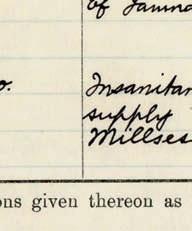 of Jamna
o.
Insanitar
supply
Millses
ons given thereon as